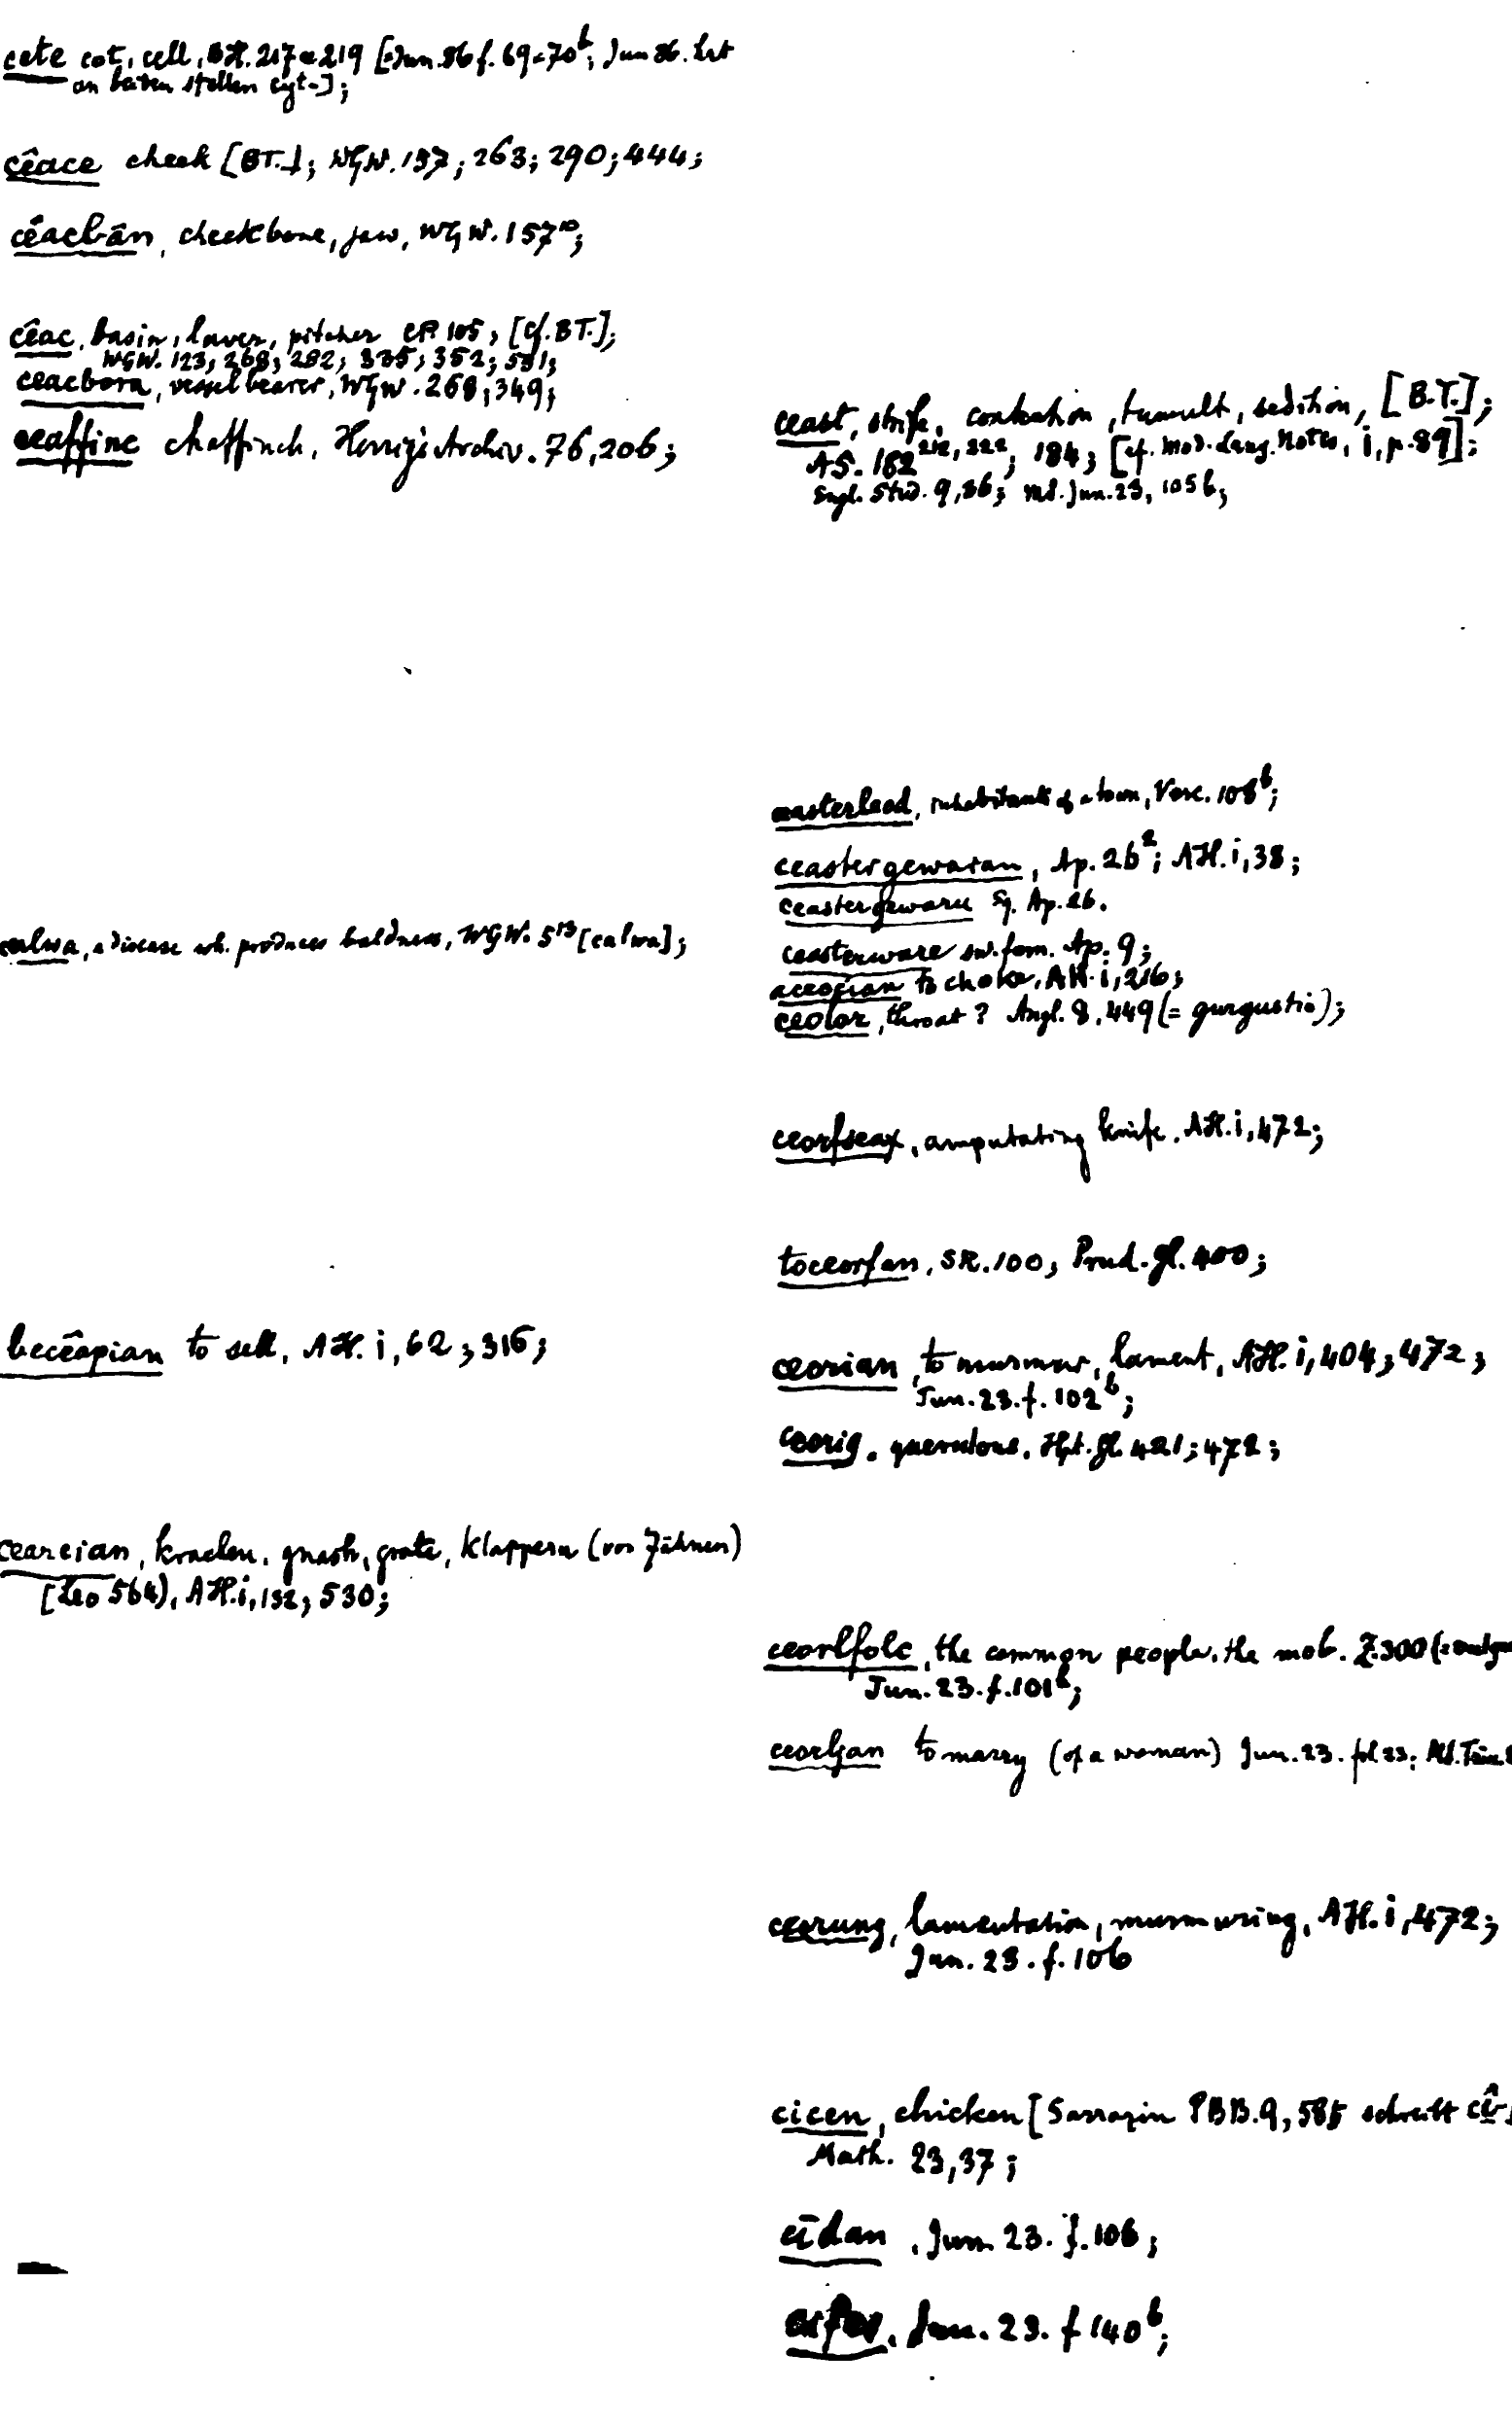 cete cot, cell, BH. 217 a 219 [Jun. 86 f. 69-70b; Jun 86. hat
an beiden stellen cyt-];
cêace cheek [BT.]; WGW. 157; 263; 290; 444;
cêacbān, cheekbone, jaw, WGW. 157¹⁰;
cêac, basin, laver, pitcher CP. 105, [cf. BT.];
WGW. 123; 268; 282; 335; 352; 531;
ceacbora, vesselbearer, WGW. 268; 349;
ceaffinc chaffinch, Herrig's Archiv. 76, 206;
calwa, a disease wh. produces baldness, WGW. 5¹³ [calwa];
becēapian to sell, AH. i, 62; 316;
cearcian, krachen, gnash, grate, klappern (von Zähnen)
[Leo 564), AH. i, 132; 530;
ceast, strife, contention, tumult, sedition, [B.T.];
AS. 182²¹²,²²²; 184; [cf. Mod. Lang. Notes, i, p. 89];
Engl. Stud. 9, 36; Ms. Jun. 23, 105b;
ceasterleod, inhabitants of a town, Verc. 108b;
ceastergewaran, Ap. 26²; AH. i, 38;
ceastergewaru Sg. Ap. 26.
ceasterware sw. fem. Ap. 9;
aceocian to choke, AH. i, 216;
ceolor, throat? Angl. 8, 449 (= gurgustio);
ceorfseax, amputating knife. AH. i, 472;
toceorfan, SR. 100; Prud. gl. 400;
ceorian, to murmur, lament, AH. i, 404; 472;
Jun. 23. f. 102b;
ceorig. querulous. Hpt. gl. 421; 472;
ceorlfolc, the common people, the mob. Z. 300
Jun. 23. f. 101b;
ceorlian to marry (of a woman) Jun. 23. fol 23;
ceorung, lamentation, murmuring, AH. i, 472;
Jun. 23. f. 106
cicen, chicken [Sarrazin PBB. 9, 585 schreibt
Math. 23, 37;
cīdan, Jun. 23. f. 106;
Jun. 23. f 140b;